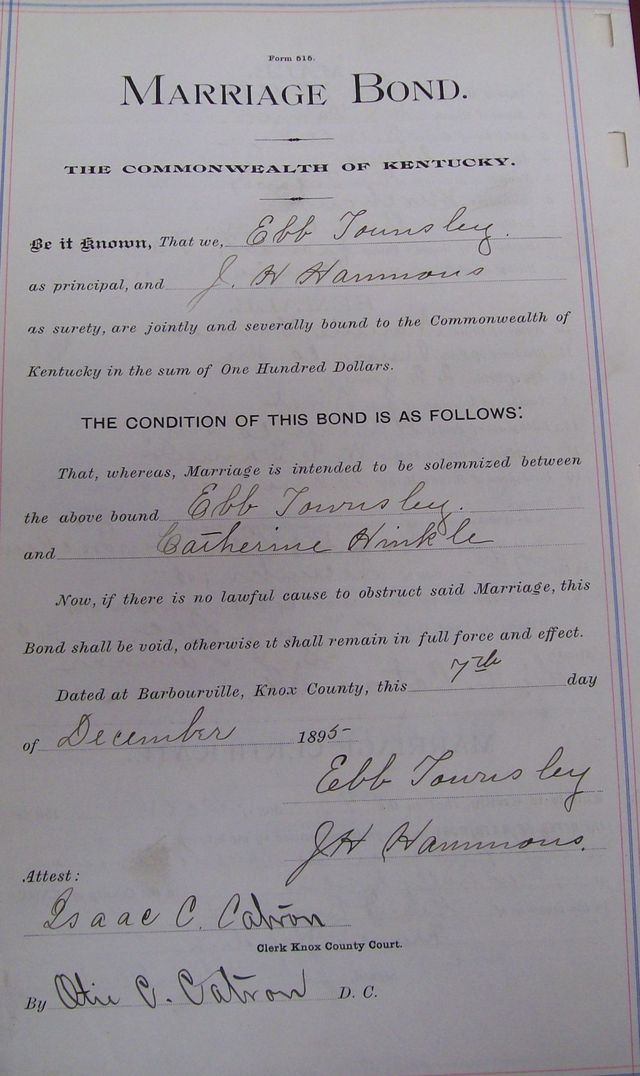 Form 515.
MARRIAGE BOND.
THE COMMONWEALTH OF KENTUCKY.
Be it Known, That we, Ebb Townsley.
as principal, and J. H Hammons
as surety, are jointly and severally bound to the Commonwealth of
Kentucky in the sum of One Hundred Dollars.
THE CONDITION OF THIS BOND IS AS FOLLOWS:
That, whereas, Marriage is intended to be solemnized between
the above bound Ebb Townsley.
and Catherine Hinkle
Now, if there is no lawful cause to obstruct said Marriage, this
Bond shall be void, otherwise it shall remain in full force and effect.
Dated at Barbourville, Knox County, this 7th day
of December 1895
Ebb Townsley
JH Hammons.
Attest:
Isaac C. Catron
Clerk Knox County Court.
By Otie C. Catron D. C.